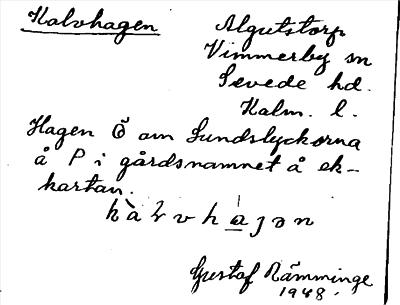 Kalvhagen
Algutstorp
Vimmerby sn
Sevede hd.
Kalm. l.
Hagen Ö om Sundslyckorna
å P i gårdsnamnet å ek-
kartan.
Gustaf Rämminge
1948.